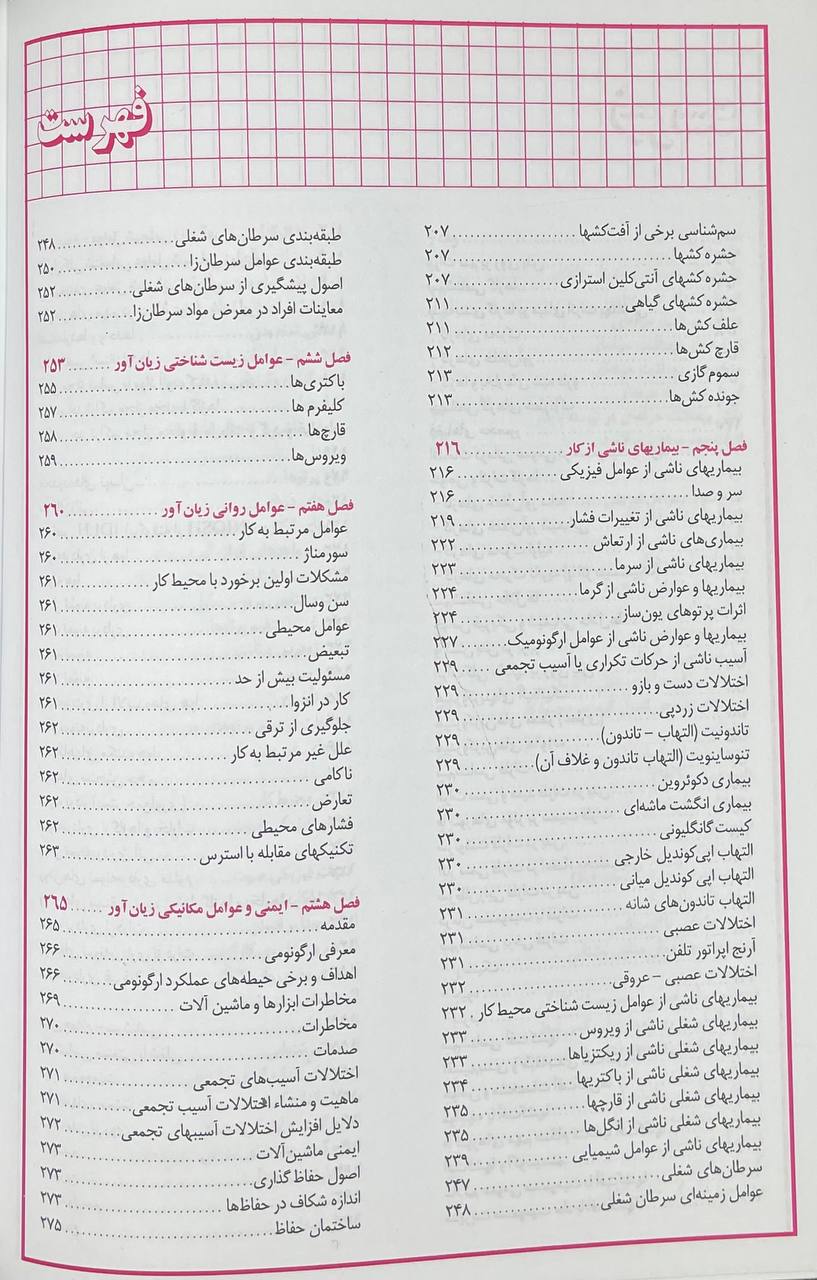 فهرست
سم‌شناسی برخی از آفت‌کشها ..................... ۲۰۷
حشره کشها ..................... ۲۰۷
حشره کشهای آنتی‌کلین استرازی ..................... ۲۰۷
حشره کشهای گیاهی ..................... ۲۱۱
علف‌کش‌ها ..................... ۲۱۱
قارچ کش‌ها ..................... ۲۱۲
سموم گازی ..................... ۲۱۳
جونده کش‌ها ..................... ۲۱۳
فصل پنجم – بیماریهای ناشی از کار ..................... ۲۱۶
بیماریهای ناشی از عوامل فیزیکی ..................... ۲۱۶
سر و صدا ..................... ۲۱۶
بیماریهای ناشی از تغییرات فشار ..................... ۲۱۹
بیماری‌های ناشی از ارتعاش ..................... ۲۲۲
بیماریهای ناشی از سرما ..................... ۲۲۳
بیماریها و عوارض ناشی از گرما ..................... ۲۲۴
اثرات پرتوهای یون‌ساز ..................... ۲۲۴
بیماریها و عوارض ناشی از عوامل ارگونومیک ..................... ۲۲۷
آسیب ناشی از حرکات تکراری یا آسیب تجمعی ...... ۲۲۹
اختلالات دست و بازو ..................... ۲۲۹
اختلالات زردپی ..................... ۲۲۹
تاندونیت (التهاب – تاندون) ..................... ۲۲۹
تنوساینویت (التهاب تاندون و غلاف آن) ..................... ۲۲۹
بیماری دکوئروین ..................... ۲۳۰
بیماری انگشت ماشه‌ای ..................... ۲۳۰
کیست گانگلیونی ..................... ۲۳۰
التهاب اپی‌کوندیل خارجی ..................... ۲۳۰
التهاب اپی کوندیل میانی ..................... ۲۳۰
التهاب تاندون‌های شانه ..................... ۲۳۱
اختلالات عصبی ..................... ۲۳۱
آرنج اپراتور تلفن ..................... ۲۳۱
اختلالات عصبی – عروقی ..................... ۲۳۲
بیماریهای ناشی از عوامل زیست شناختی محیط کار . ۲۳۲
بیماریهای شغلی ناشی از ویروس ..................... ۲۳۳
بیماریهای شغلی ناشی از ریکتزیاها ..................... ۲۳۳
بیماریهای شغلی ناشی از باکتریها ..................... ۲۳۴
بیماریهای شغلی ناشی از قارچها ..................... ۲۳۵
بیماریهای شغلی ناشی از انگل‌ها ..................... ۲۳۵
بیماریهای ناشی از عوامل شیمیایی ..................... ۲۳۹
سرطان‌های شغلی ..................... ۲۴۷
عوامل زمینه‌ای سرطان شغلی ..................... ۲۴۸
طبقه‌بندی سرطان‌های شغلی ..................... ۲۴۸
طبقه‌بندی عوامل سرطان‌زا ..................... ۲۵۰
اصول پیشگیری از سرطان‌های شغلی ..................... ۲۵۲
معاینات افراد در معرض مواد سرطان‌زا ..................... ۲۵۲
فصل ششم – عوامل زیست شناختی زیان‌آور ........ ۲۵۳
باکتری‌ها ..................... ۲۵۵
کلیفرم ها ..................... ۲۵۷
قارچ‌ها ..................... ۲۵۸
ویروس‌ها ..................... ۲۵۹
فصل هفتم – عوامل روانی زیان‌آور ..................... ۲۶۰
عوامل مرتبط به کار ..................... ۲۶۰
سورمناژ ..................... ۲۶۰
مشکلات اولین برخورد با محیط کار ..................... ۲۶۱
سن وسال ..................... ۲۶۱
عوامل محیطی ..................... ۲۶۱
تبعیض ..................... ۲۶۱
مسئولیت بیش از حد ..................... ۲۶۱
کار در انزوا ..................... ۲۶۱
جلوگیری از ترقی ..................... ۲۶۲
علل غیر مرتبط به کار ..................... ۲۶۲
ناکامی ..................... ۲۶۲
تعارض ..................... ۲۶۲
فشارهای محیطی ..................... ۲۶۲
تکنیکهای مقابله با استرس ..................... ۲۶۳
فصل هشتم – ایمنی و عوامل مکانیکی زیان‌آور ...... ۲۶۵
مقدمه ..................... ۲۶۵
معرفی ارگونومی ..................... ۲۶۶
اهداف و برخی حیطه‌های عملکرد ارگونومی ..................... ۲۶۶
مخاطرات ابزارها و ماشین آلات ..................... ۲۶۹
مخاطرات ..................... ۲۷۰
صدمات ..................... ۲۷۰
اختلالات آسیب‌های تجمعی ..................... ۲۷۱
ماهیت و منشاء اختلالات آسیب تجمعی ..................... ۲۷۱
دلایل افزایش اختلالات آسیبهای تجمعی ..................... ۲۷۲
ایمنی ماشین‌آلات ..................... ۲۷۳
اصول حفاظ گذاری ..................... ۲۷۳
اندازه شکاف در حفاظ‌ها ..................... ۲۷۳
ساختمان حفاظ ..................... ۲۷۵